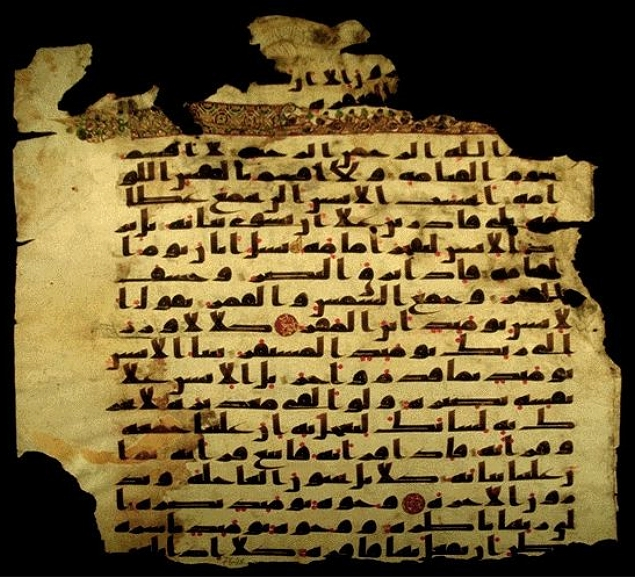 الله الرحمن الرحيم لا اقسم
بيوم القيمة ولا اقسم بالنفس اللو
امة ايحسب الانسن الن نجمع عظا
مه بلى قدرين على ان نسوي بنانه بل ير
يد الانسن ليفجر امامه يسل ايان يوم ا
لقيمة فاذا برق البصر وخسف
القمر وجمع الشمس والقمر يقول ا
لانسن يومئذ اين المفر كلا لا وزر
الى ربك يومئذ المستقر ينبا الانسن
يومئذ بما قدم واخر بل الانسن على
نفسه بصيرة ولو القى معذيره لا تحر
ك به لسانك لتعجل به ان علينا جمعه
وقرانه فاذا قرانه فاتبع قرانه ثم ا
ن علينا بيانه كلا بل تحبون العاجلة وتذ
رون الاخرة وجوه يومئذ ناضرة ا
لى ربها ناظرة ووجوه يومئذ باسرة
تظن ان يفعل بها فاقرة كلا اذا